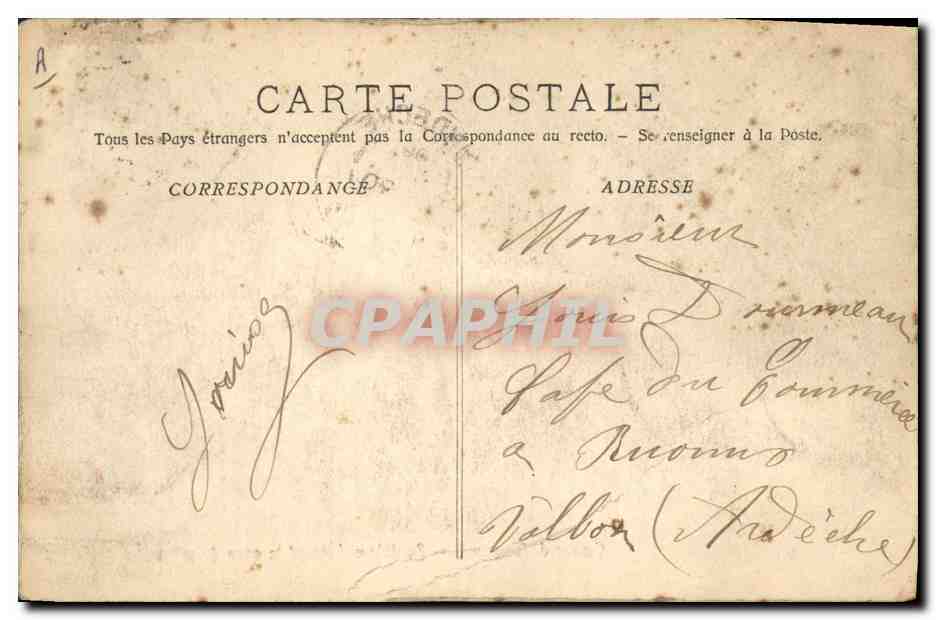 A
CARTE POSTALE
Tous les Pays étrangers n'acceptent pas la Correspondance au recto. — Se renseigner à la Poste.
CORRESPONDANCE
ADRESSE
Monsieur
Louis Dourmeau
Café du Commerce
a Ruoms
Vallon (Ardèche)
CPAPHIL